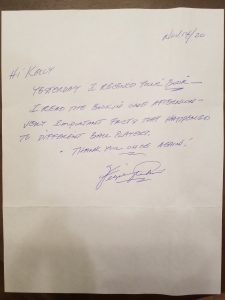 Nov/14/20
Hi Kelly
Yesterday I received your "Book" —
I read the book in one afternoon —
very important facts that happened
to different ball players.
• Thank you once again!